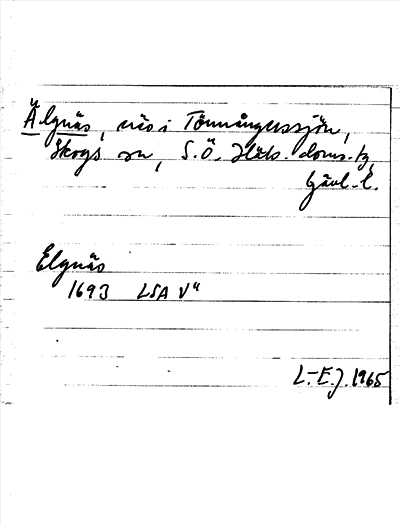 Älgnäs, näs i Tönnångerssjön,
Skogs sn, S.Ö. Häls. doms.tg,
Gävl.l.
Elgnäs
1693 LSA V"
L-E.J. 1965